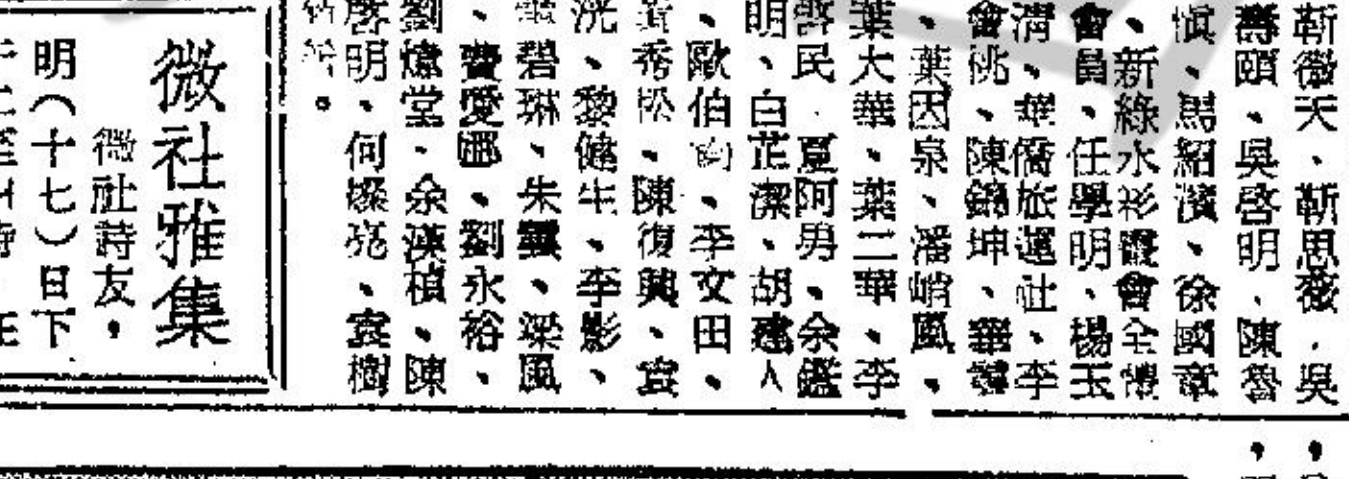 靳微天、靳思薇、吳
壽頤、吳啓明、陳魯
慎、馬紹濱、徐國章
、新綠水彩畫會全體
會員、任學明、楊玉
渭、華僑旅運社、李
會桃、陳錦坤、
、葉因泉、潘峭風、
葉大華、葉二華、李
啓民、夏阿男、余鑑
明、白芷潔、胡建人
、歐伯、李文田、
秀松、陳復興、袁
洸、黎健生、李影、
碧琳、朱、梁風
、費愛、劉永裕、
劉煒堂、余漢楨、陳
啓明、何燦亮、袁樹
。
微社雅集
微社詩友，
明（十七）日下